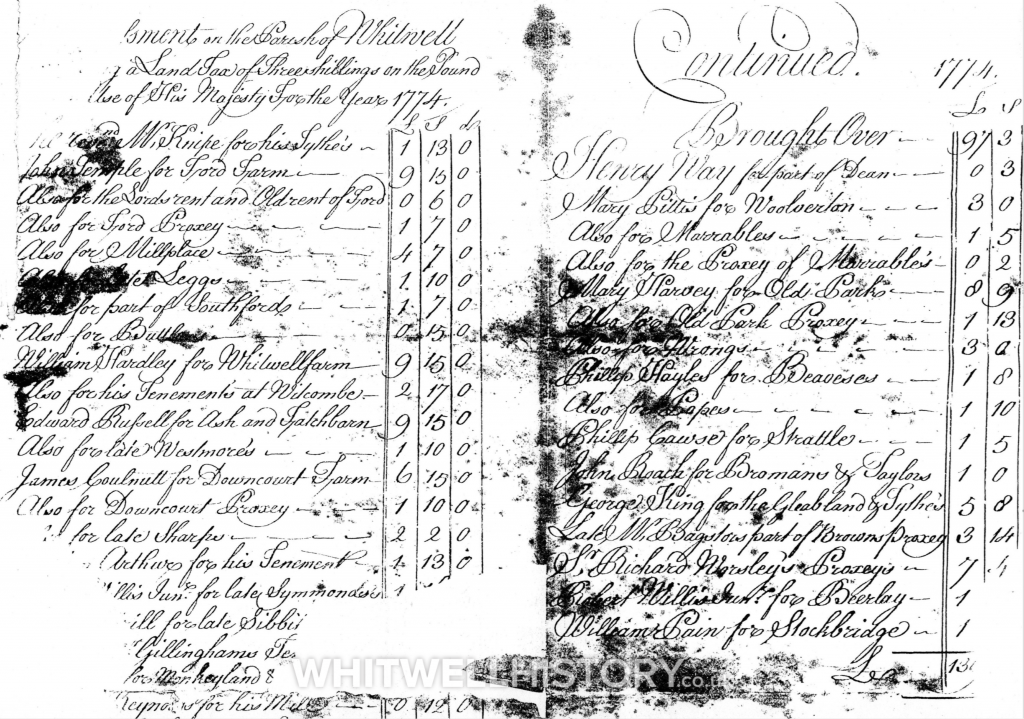 sment on the Parish of Whitwell
a Land Tax of Three shillings on the Pound
Use of His Majesty For the Year 1774.
£ S d
Mr Knipe for his Tythes 1 13 0
John Temple for Ford Farm 9 15 0
Also for the Lords rent and Old rent of Ford 0 6 0
Also for Ford Proxey 1 7 0
Also for Millplace 4 7 0
Leggs 1 10 0
for part of Southfords 1 7 0
Also for 0 15 0
William Hardley for Whitwellfarm 9 15 0
Also for his Tenements at Wilcombe 2 17 0
Edward Russell for Ash and 9 15 0
Also for late Westmores 1 10 0
James Coulnutt for Downcourt Farm 6 15 0
Also for Downcourt Proxey 1 10 0
for late Sharps 2 2 0
Arthur for his Tenement 1 13 0
illis Junr. for late Symmonds's 1
ill for late Sibbi
Gillinghams Te
for Monkeyland &
Reyno s for his Mill 0 12 0
Continued. 1774.
£ S
Brought Over 97 3
Henry Way for part of Dean 0 3
Mary Pittis for Woolverton 3 0
Also for Marrables 1 5
Also for the Proxey of Marrable's 0 2
Mary Harvey for Old Park 8 9
Also for Old Park Proxey 1 13
Also for Wrongs 3 0
Phillip Hayles for Beaveses 1 8
Also for Papes 1 10
Phillip Cawse for Strattle 1 5
John Roach for Bromans & Taylors 1 0
George King for the Gleabland & Tythes 5 8
Late Mr Bagsters part of Browns proxey 3 14
Sr. Richard Worsley's Proxeys 7 4
Robert Willis Junr. for Beerlay 1
William Pain for Stockbridge 1
£ 13
WHITWELLHISTORY.co.uk